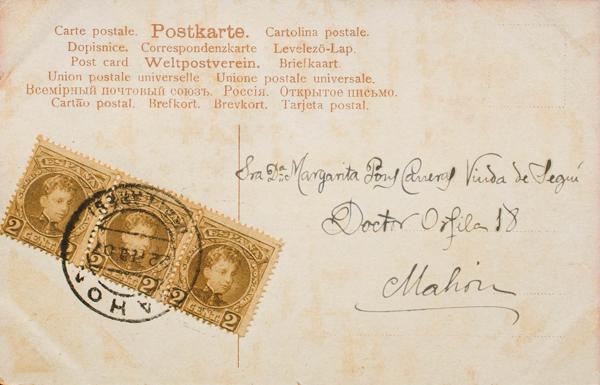 Carte postale. Postkarte. Cartolina postale.
Dopisnice. Correspondenzkarte Levelező-Lap.
Post card Weltpostverein. Briefkaart.
Union postale universelle Unione postale universale.
Всемірный почтовый союзъ. Россія. Открытое письмо.
Cartão postal. Brefkort. Brevkort. Tarjeta postal.
Sra Dª Margarita Pons Carreras Viuda de Seguí
Doctor Orfila 18
Mahón
ESPAÑA
2 CENT 2
ESPAÑA
2 CENT 2
ESPAÑA
2 CENT 2
MAHON